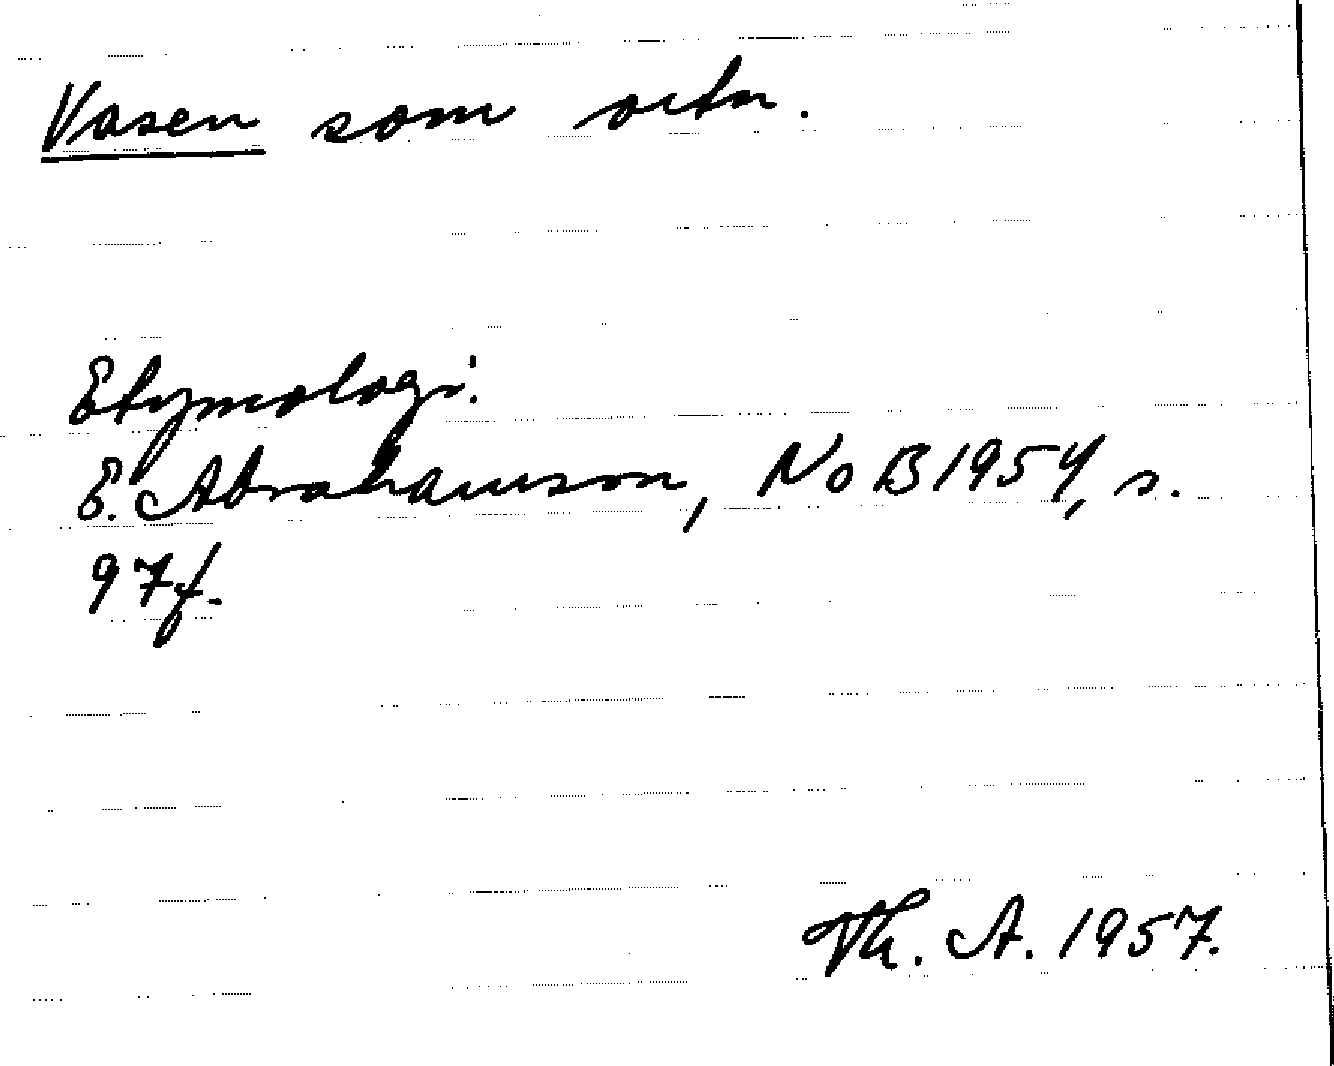 Vasen som ortn.
Etymologi.
E. Abrahamson, NoB 1954, s.
97f.
Th. A. 1957.